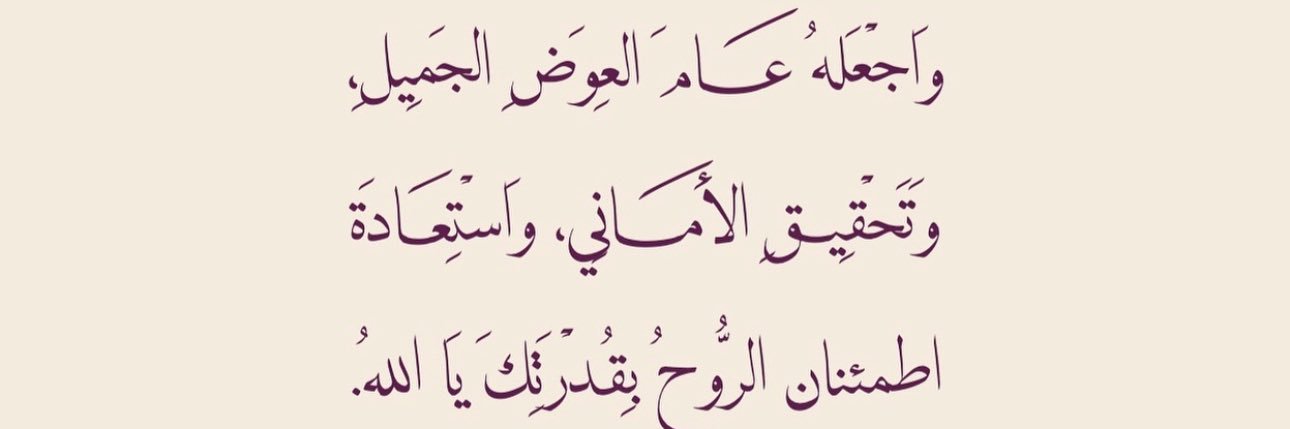 وَاجْعَلهُ عَـــامَ العِوَضِ الجَمِيلِ،
وَتَحْقِيـقِ الأَمَـــانِي، وَاسْتِعَـادَةَ
اطمئنان الرُّوحُ بِقُدْرَتِكَ يَا اللهُ.